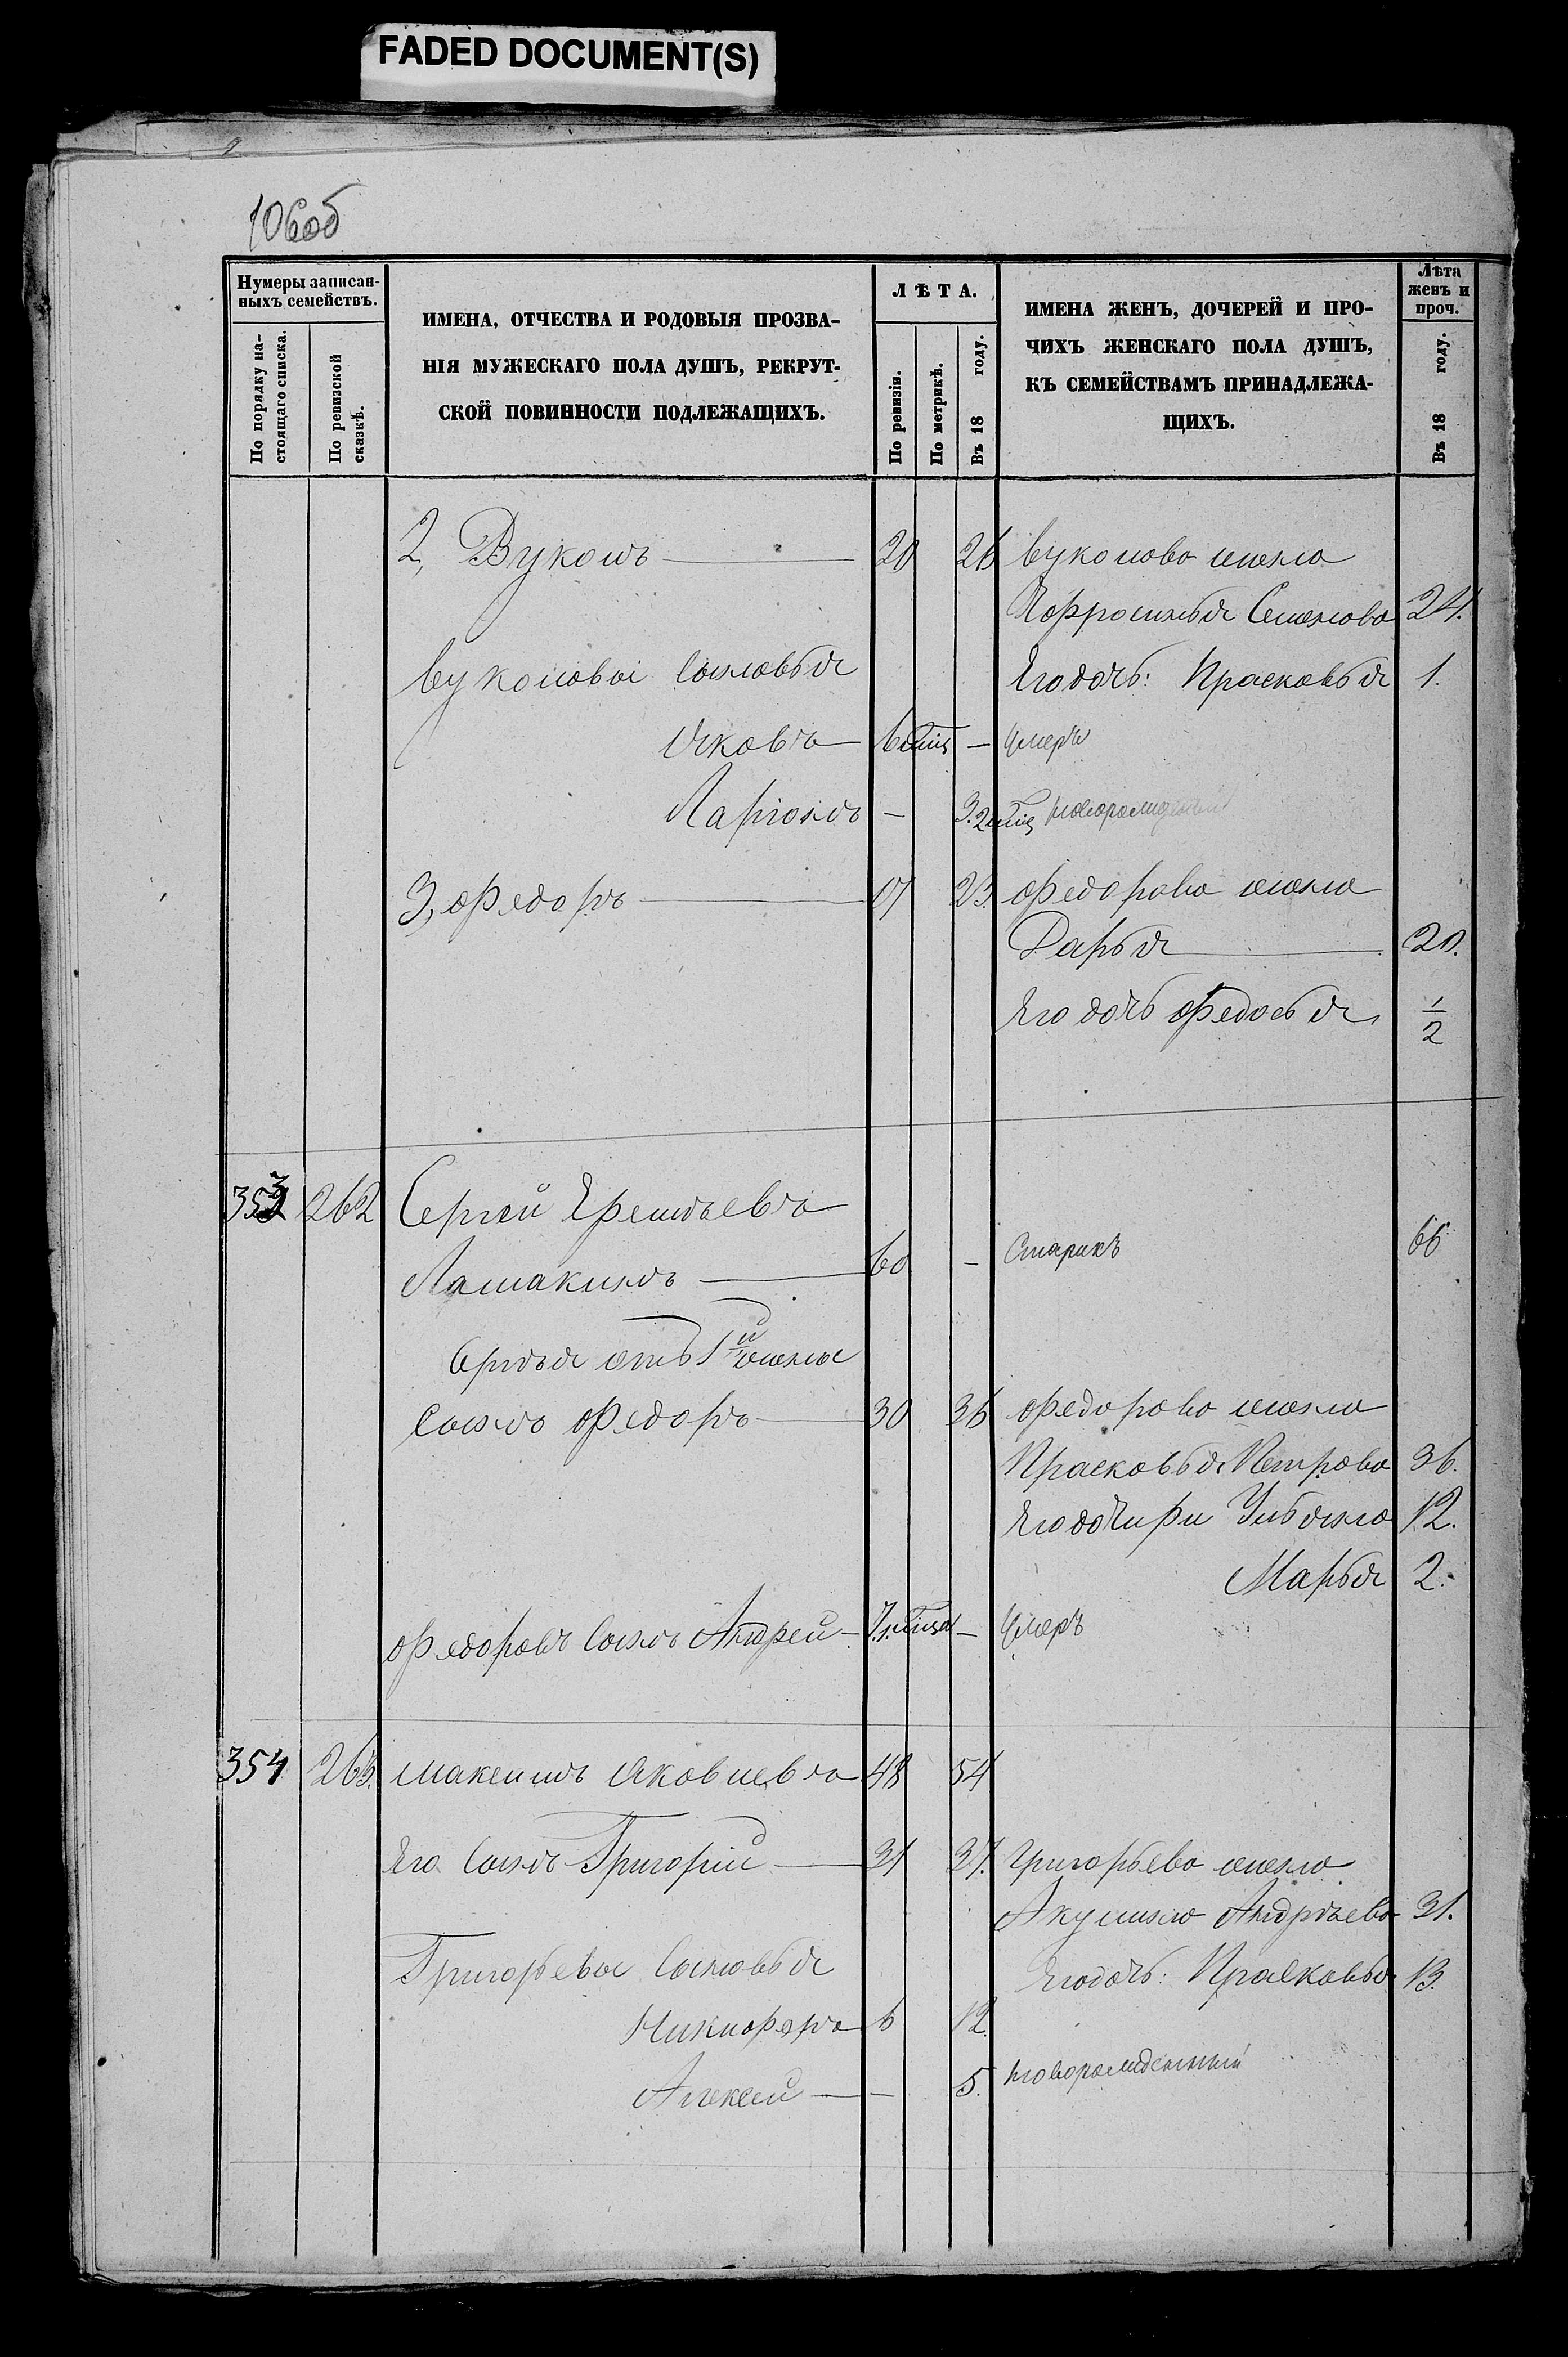 FADED DOCUMENT(S)
106об
Нумеры записан-
ныхъ семействъ.
По порядку на-
стоящаго списка.
По ревизской
сказкѣ.
ИМЕНА, ОТЧЕСТВА И РОДОВЫЯ ПРОЗВА-
НІЯ МУЖЕСКАГО ПОЛА ДУШЪ, РЕКРУТ-
СКОЙ ПОВИННОСТИ ПОДЛЕЖАЩИХЪ.
ЛѢТА.
По ревизіи.
По метрикѣ.
Въ 18 году.
ИМЕНА ЖЕНЪ, ДОЧЕРЕЙ И ПРО-
ЧИХЪ ЖЕНСКАГО ПОЛА ДУШЪ,
КЪ СЕМЕЙСТВАМЪ ПРИНАДЛЕЖА-
ЩИХЪ.
Лѣта
женъ и
проч.
Въ 18 году.
2, Вуколъ — 20 26 вуколова жена
Ефросинья Семенова 24.
вуколовы сыновья Его дочь: Прасковья 1.
Яковъ — — умеръ
Ларіонъ — новорожденный
3, Федоръ — 17 23. Федорова жена
Дарья — 20.
Его дочь Федосья 1/2
353 262 Сергѣй Еремѣевъ
Лашакинъ — 60 — Старикъ 66
отъ 1й жены
сынъ Федоръ — 30 36 Федорова жена
Прасковья Петрова 36.
Его дочери Ульяна 12.
Марья 2.
Федоровъ сынъ Андрей — — умеръ
354 263. Максимъ Яковлевъ — 48 54
Его сынъ Григорій — 31 37. Григорьева жена
Акулина Андрѣева 31.
Григорьевы сыновья Его дочь: Прасковья 13.
Никифоръ 6 12.
Алексей — — 5. новорожденный